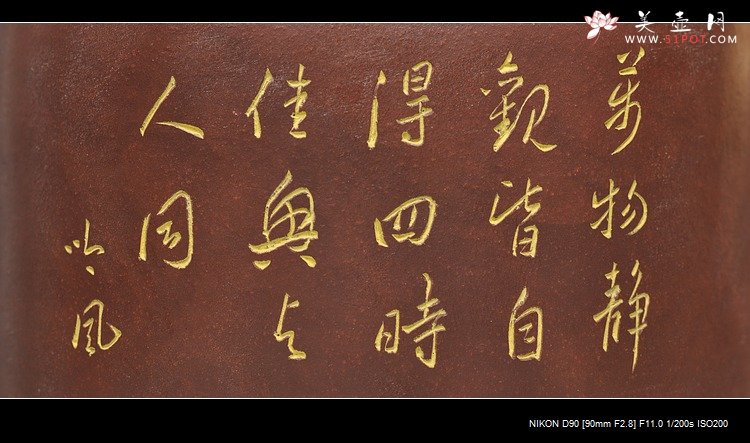 美壶网
WWW.51POT.COM
萬物靜
觀皆自
得四時
佳興与
人同
吟風
NIKON D90 [90mm F2.8] F11.0 1/200s ISO200